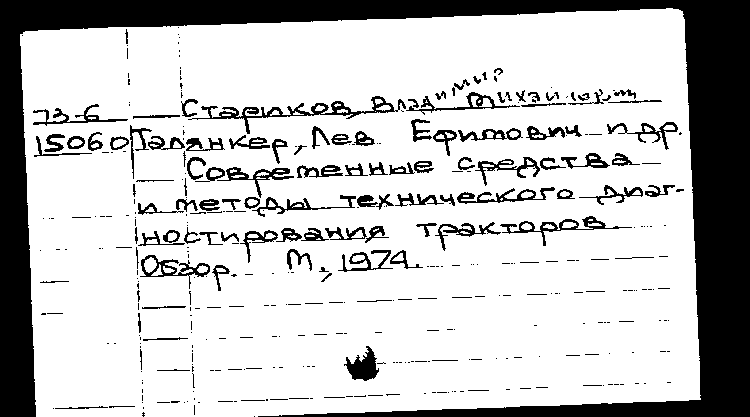 73-6 Стариков, Владимир Михайлович
15060 Талянкер, Лев Ефимович и др.
Современные средства
и методы технического диаг-
ностирования тракторов.
Обзор. М., 1974.